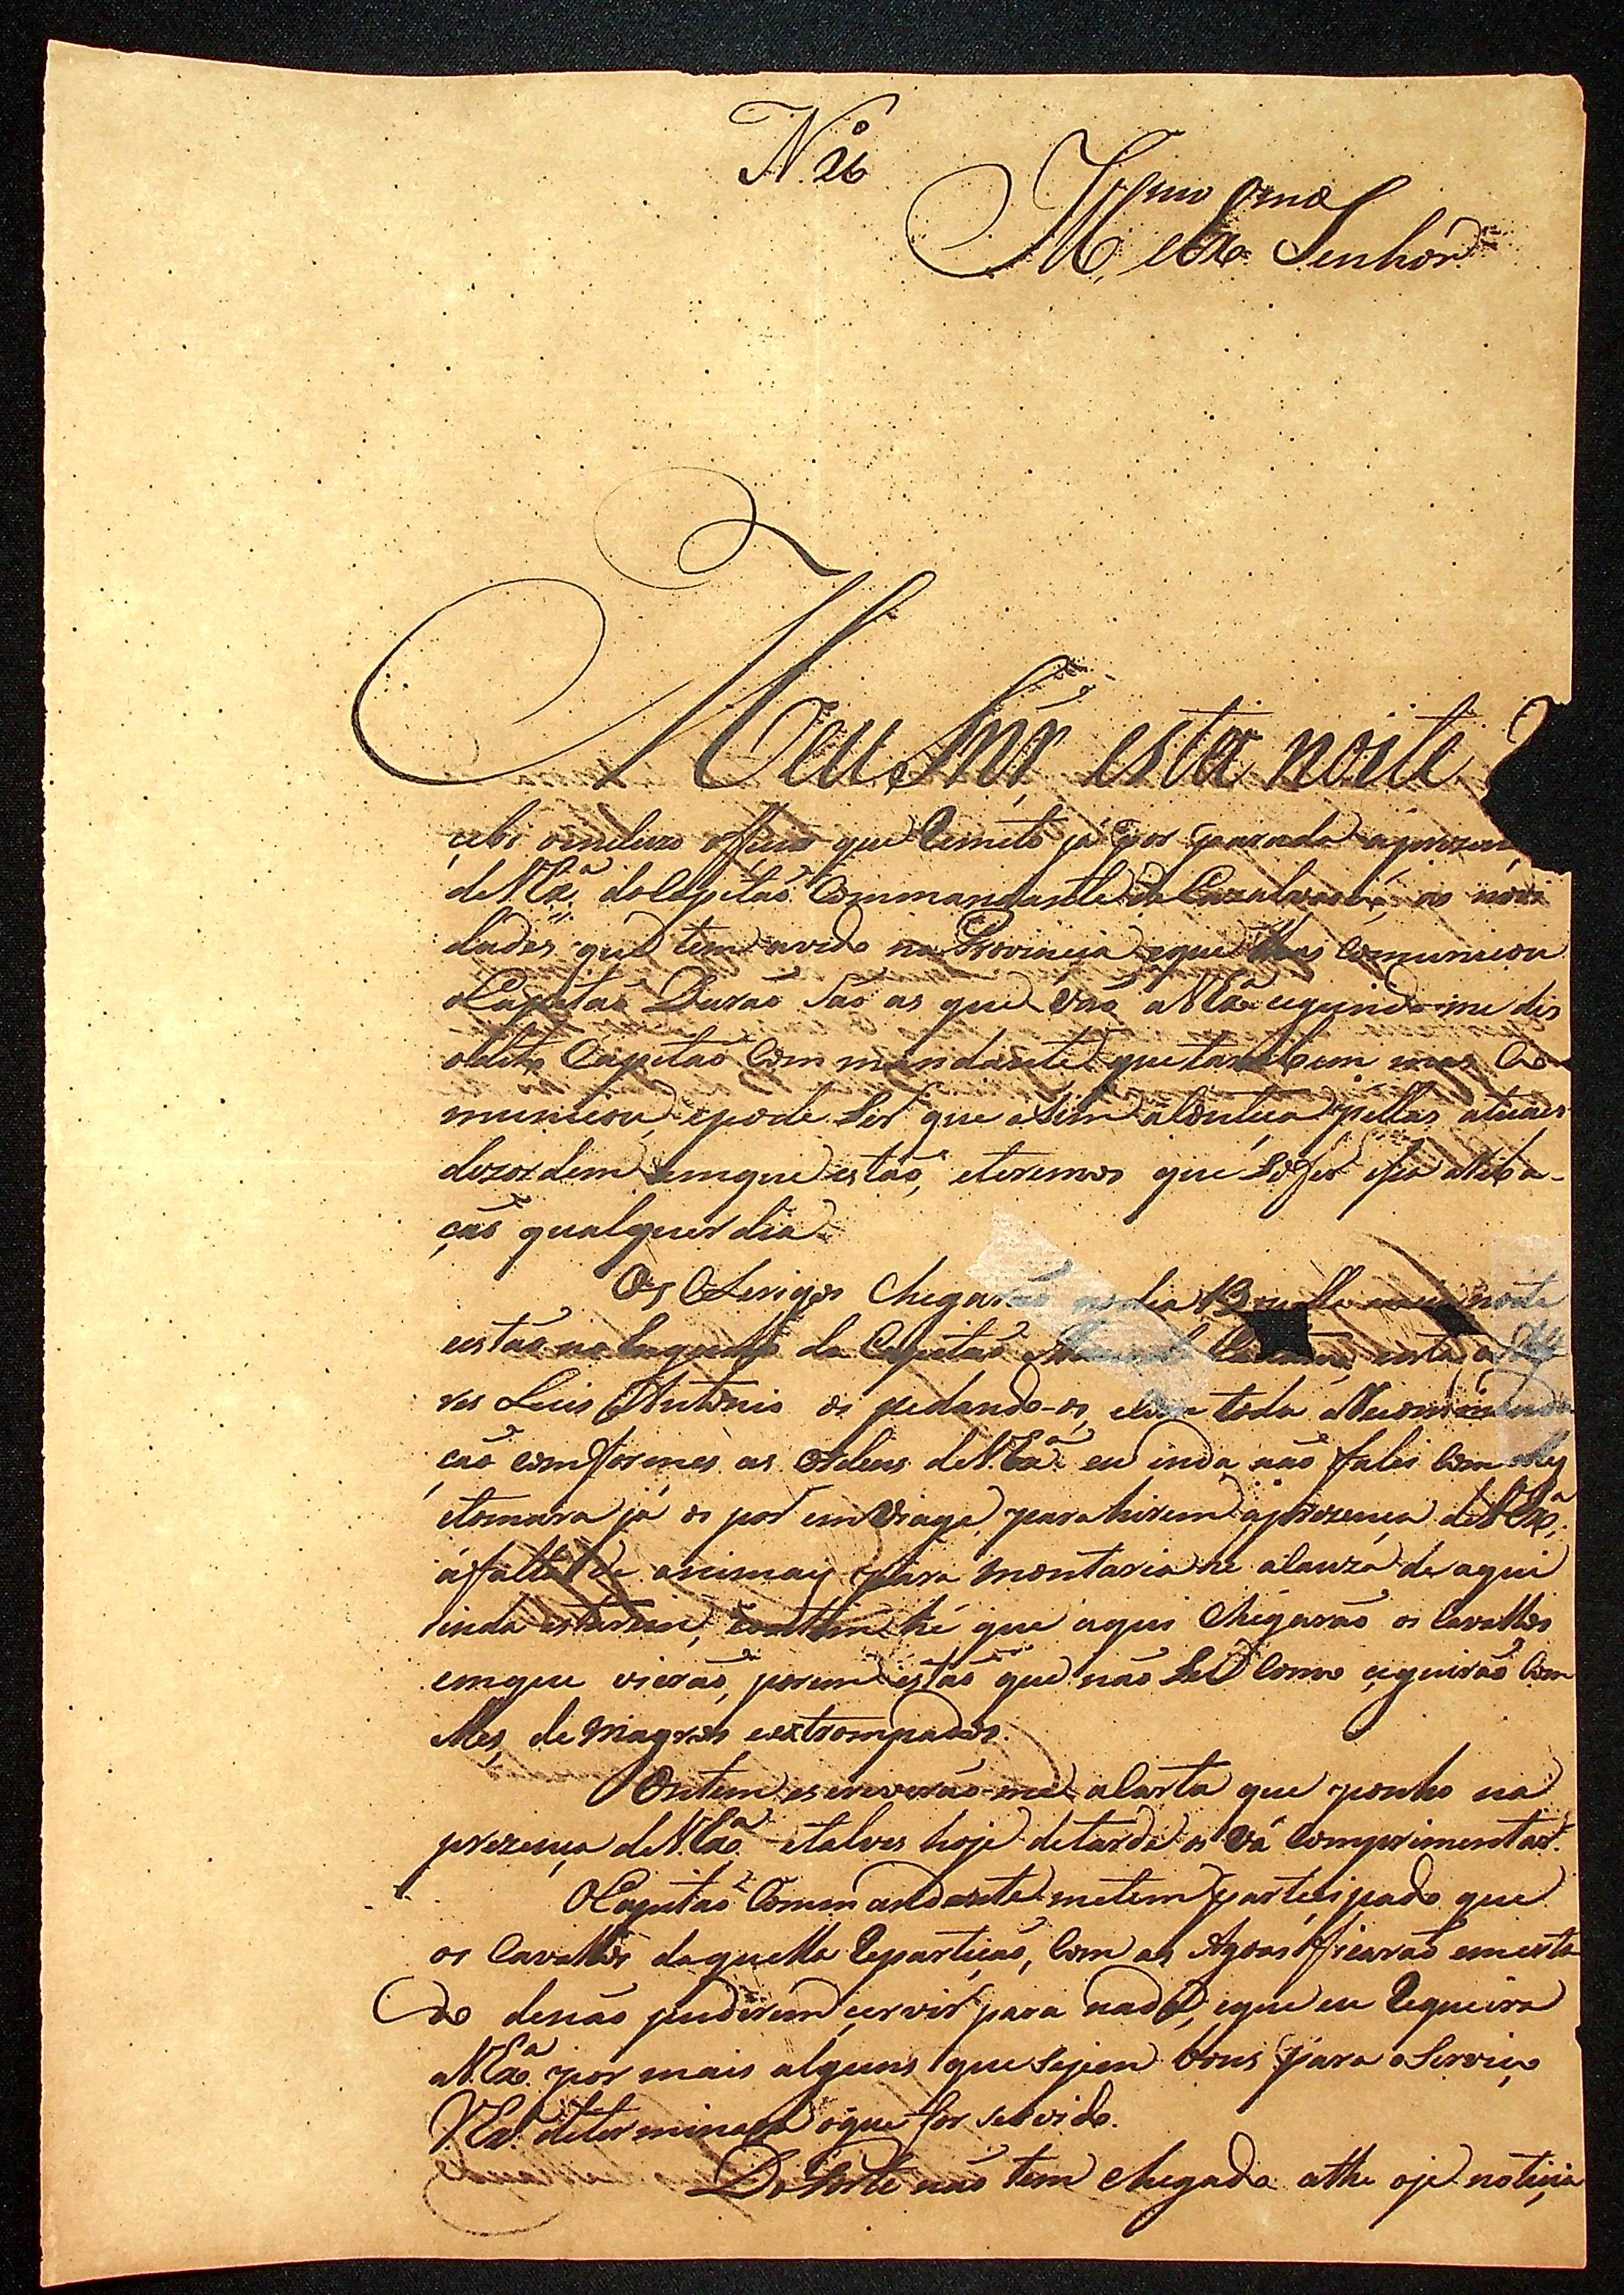 N.º 26
Illmo e Exmo Senhor
Meu Snr esta noite
cebi o incluzo officio que Remeto já por parada aprezen
de V. Exª do Capitão Commandante de Cazalvasco, as novi
dades que tem avido na Provincia, e que lhes Comunicou
o Capitão Durão São as que vão a V. Exª cegundo me dis
o dito Capitão Commandante que tambem mas Co
municou, e pode Ser que asim aConteça pellas atuaes
dezordem em que estão, e teremos que Sofrer esta atriba-
ção qualquer dia.
Os Clerigos Chegarão no dia 13 meia noite
estão no da Capitão esta o Alfe
res Luis Antonio os pedando-os, e Com toda a Recomenda
ção comformes as Ordens de V. Exª eu inda não falei Com elles
e tomara já os por em Viage, para hirem a prezença de V. Exª,
a falta de animaes para montaria he a Cauza de aqui
inda estarem, Contem hé que aqui Chegarão os Cavallos
em que vierão, porem estão que não Sei Como ceguirão Com
elles, de magros e extrompados.
Ontem escreverão-me a Carta que ponho na
prezença de V. Exª e talves hoje de tarde os Vá Comprimentar.
O Capitão Commandante me tem participado que
os Cavallos daquella Repartição, Com as Agoas ficarão em esta
do de não puderem cervir para nada, e que eu Requeira
a V. Exª por mais alguns que Sejem bons para o Serviço
V. Exª determinará o que for Servido.
Do Forte não tem chegado athe oje noticia